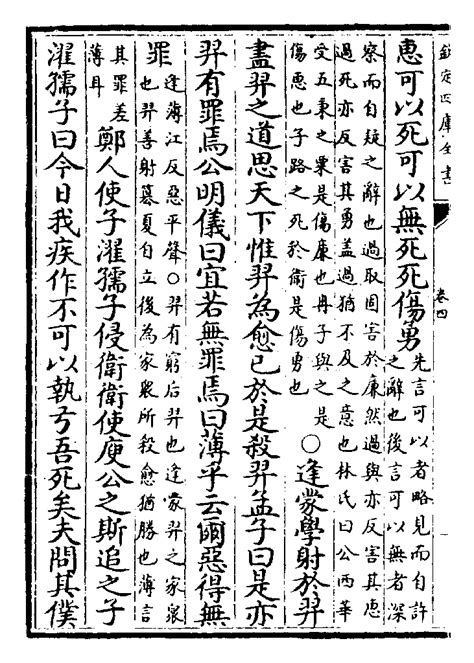 欽定四庫全書
卷四
惠可以死可以無死死傷勇
先言可以者略見而自許
之辭也後言可以無者深
察而自疑之辭也過取固害於廉然過與亦反害其惠
過死亦反害其勇蓋過猶不及之意也林氏曰公西華
受五秉之粟是傷廉也冉子與之是
傷惠也子路之死於衛是傷勇也
○逄蒙學射於羿
盡羿之道思天下惟羿為愈己於是殺羿孟子曰是亦
羿有罪焉公明儀曰宜若無罪焉曰薄乎云爾惡得無
罪
逄薄江反惡平聲○羿有窮后羿也逄蒙羿之家衆
也羿善射篡夏自立後為家衆所殺愈猶勝也薄言
其罪差
薄耳
鄭人使子濯孺子侵衛衛使庾公之斯追之子
濯孺子曰今日我疾作不可以執弓吾死矣夫問其僕